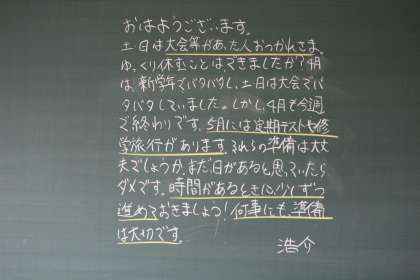 おはようございます。
土日は大会等があった人おつかれさま。
ゆっくり休むことはできましたか？4月
は、新学年でバタバタし、土日は大会でバ
タバタしていました。しかし、4月も今週
で終わりです。5月には定期テストや修
学旅行があります。それらの準備は大丈
夫でしょうか。まだ日があると思っていたら
ダメです。時間があるときに少しずつ
進めておきましょう！何事にも、準備
は大切です。
浩介